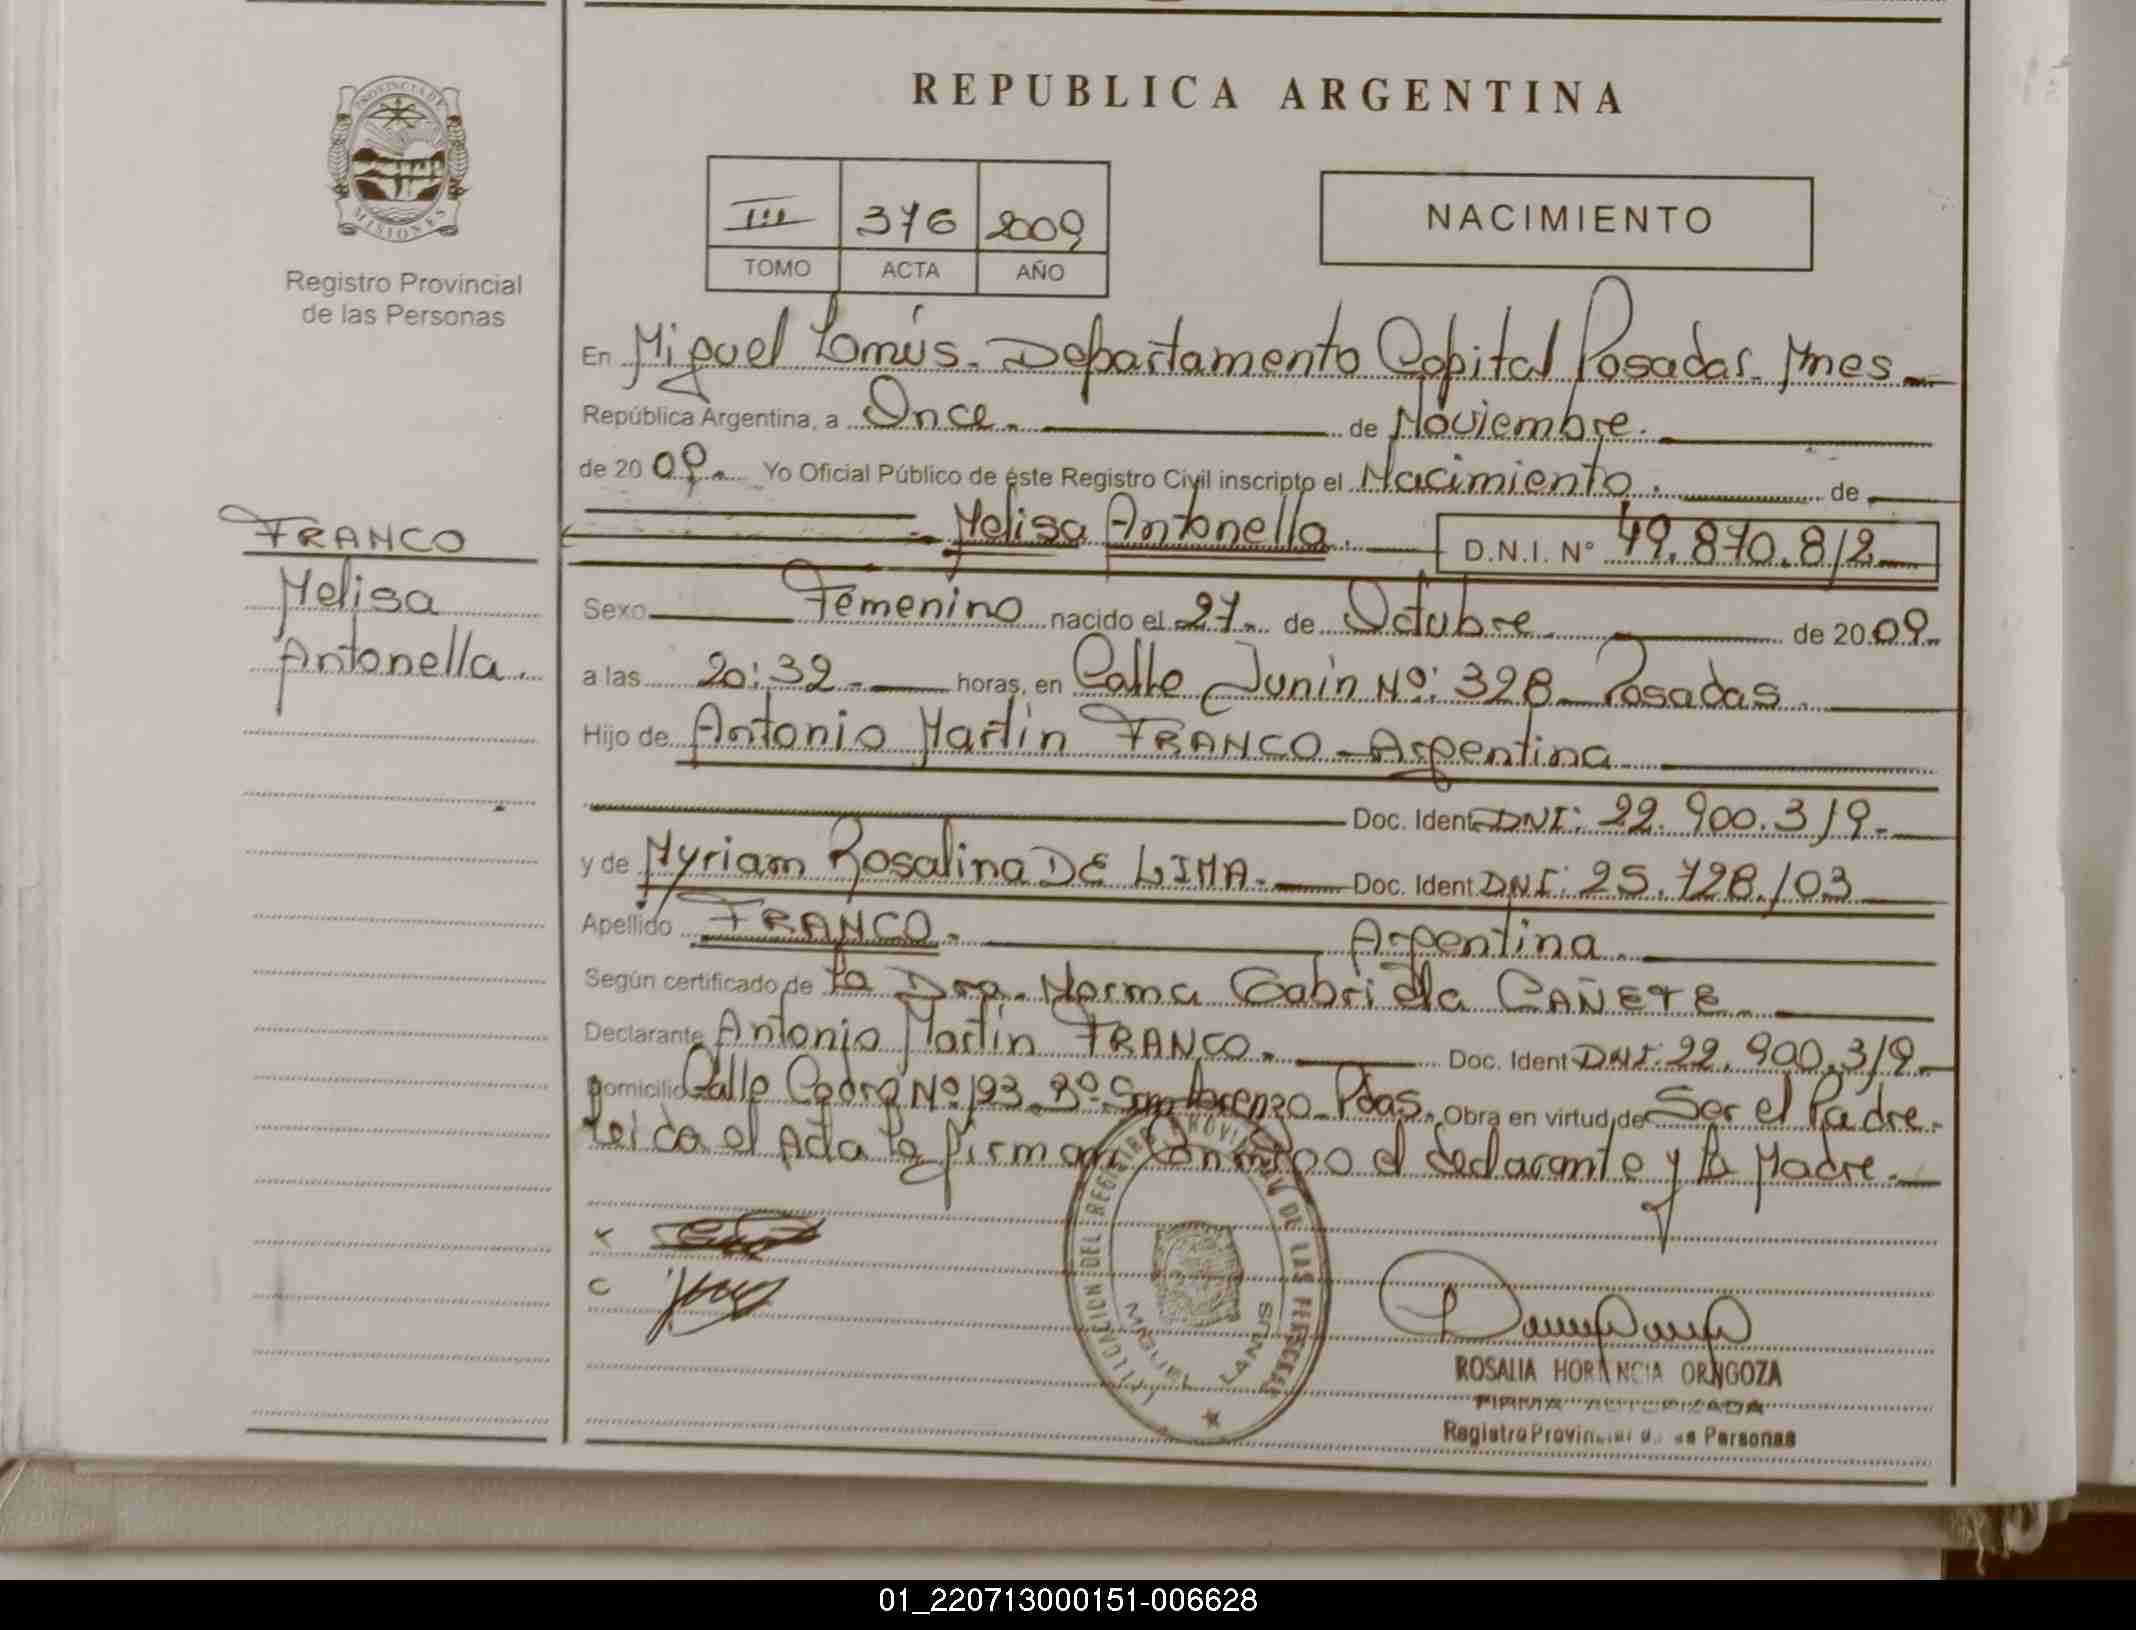 REPUBLICA ARGENTINA
PROVINCIA DE
MISIONES
Registro Provincial
de las Personas
III 376 2009
TOMO ACTA AÑO
NACIMIENTO
En Miguel Lanús. Departamento Capital Posadas Mnes
República Argentina, a Once. de Noviembre.
de 20 09. Yo Oficial Público de éste Registro Civil inscripto el Nacimiento. de
Melisa Antonella. D.N.I. Nº 49.870.812
FRANCO
Melisa
Antonella.
Sexo Femenino nacido el 27 de Octubre de 20 09.
a las 20:32 horas, en Calle Junín Nº: 328 Posadas.
Hijo de Antonio Martín FRANCO - Argentina
Doc. Ident. DNI: 22.900.319.
y de Myriam Rosalina DE LIMA. Doc. Ident. DNI: 25.728.103
Apellido FRANCO. Argentina.
Según certificado de La Dra. Norma Gabriela CAÑETE.
Declarante Antonio Martín FRANCO. Doc. Ident DNI: 22.900.319
Domicilio Calle Cedro Nº 193 Bº San Lorenzo - Pdas. Obra en virtud de Ser el Padre.
Leida el Acta la firman Conmigo el declarante y la Madre.
REGISTRO PROVINCIAL DE LAS PERSONAS
MIGUEL LANUS
ROSALIA
FIRMA AUTORIZADA
Registro Provincial de las Personas
01_220713000151-006628